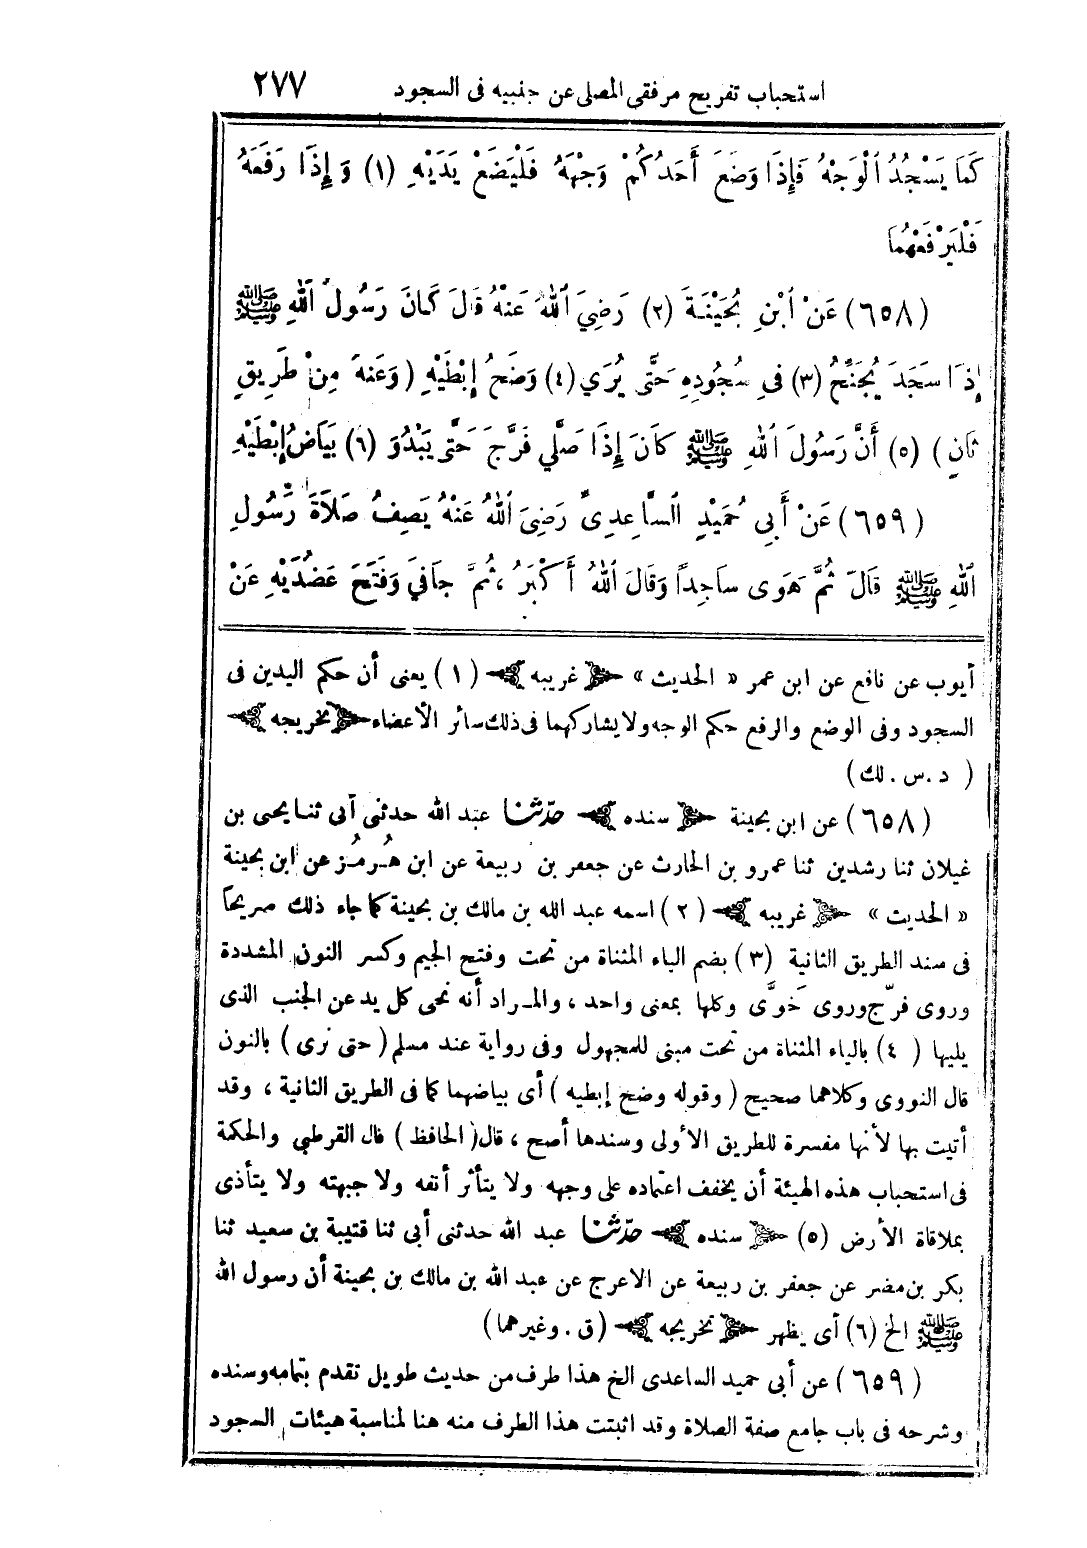 استحباب تفريج مرفقى المصلى عن جنبيه فى السجود ٢٧٧
كَمَا يَسْجُدُ ٱلْوَجْهُ فَإِذَا وَضَعَ أَحَدُكُمْ وَجْهَهُ فَلْيَضَعْ يَدَيْهِ (١) وَإِذَا رَفَعَهُ
فَلْيَرْفَعْهُمَا
(٦٥٨) عَنْ ٱبْنِ بُحَيْنَةَ (٢) رَضِيَ ٱللهُ عَنْهُ قَالَ كَانَ رَسُولُ ٱللهِ ﷺ
إِذَا سَجَدَ يُجَنِّحُ (٣) فِي سُجُودِهِ حَتَّى يُرَي (٤) وَضَحُ إِبْطَيْهِ (وَعَنْهُ مِنْ طَرِيقٍ
ثَانٍ) (٥) أَنَّ رَسُولَ ٱللهِ ﷺ كَانَ إِذَا صَلَّي فَرَّجَ حَتَّى يَبْدُوَ (٦) بَيَاضُ إِبْطَيْهِ
(٦٥٩) عَنْ أَبِي حُمَيْدٍ ٱلسَّاعِدِىِّ رَضِيَ ٱللهُ عَنْهُ يَصِفُ صَلَاةَ رَسُولِ
ٱللهِ ﷺ قَالَ ثُمَّ هَوَى سَاجِدًا وَقَالَ ٱللهُ أَكْبَرُ ، ثُمَّ جَافَيَ وَفَتَحَ عَضُدَيْهِ عَنْ
أيوب عن نافع عن ابن عمر « الحديث » ﴿ غريبه ﴾ (١) يعنى أن حكم اليدين فى
السجود وفى الوضع والرفع حكم الوجه ولا يشاركهما فى ذلك سائر الأعضاء ﴿ تخريجه ﴾
( د . س . لك )
(٦٥٨) عن ابن بحينة ﴿ سنده ﴾ حدّثنا عبد الله حدثنى أبى ثنا يحيى بن
غيلان ثنا رشدين ثنا عمرو بن الحارث عن جعفر بن ربيعة عن ابن هُرمُز عن ابن بحينة
« الحديث » ﴿ غريبه ﴾ (٢) اسمه عبد الله بن مالك بن بحينة كما جاء ذلك صريحاً
فى سند الطريق الثانية (٣) بضم الياء المثناة من تحت وفتح الجيم وكسر النون المشددة
وروى فرّج وروى خَوَّى وكلها بمعنى واحد ، والمراد أنه نحى كل يد عن الجنب الذى
يليها (٤) بالياء المثناة من تحت مبنى للمجهول وفى رواية عند مسلم ( حتى نرى ) بالنون
قال النووى وكلاهما صحيح ( وقوله وضح إبطيه ) أى بياضهما كما فى الطريق الثانية ، وقد
أتيت بها لأنها مفسرة للطريق الأولى وسندها أصح ، قال ( الحافظ ) قال القرطبي والحكمة
فى استحباب هذه الهيئة أن يخفف اعتماده على وجهه ولا يتأثر أنفه ولا جبهته ولا يتأذى
بملاقاة الأرض (٥) ﴿ سنده ﴾ حدّثنا عبد الله حدثنى أبي ثنا قتيبة بن سعيد ثنا
بكر بن مضر عن جعفر بن ربيعة عن الاعرج عن عبد الله بن مالك بن بحينة أن رسول الله
ﷺ الخ (٦) أى يظهر ﴿ تخريجه ﴾ ( ق . وغيرهما )
(٦٥٩) عن أبى حميد الساعدى الخ هذا طرف من حديث طويل تقدم بتمامه وسنده
وشرحه فى باب جامع صفة الصلاة وقد اثبتت هذا الطرف منه هنا لمناسبة هيئات السجود